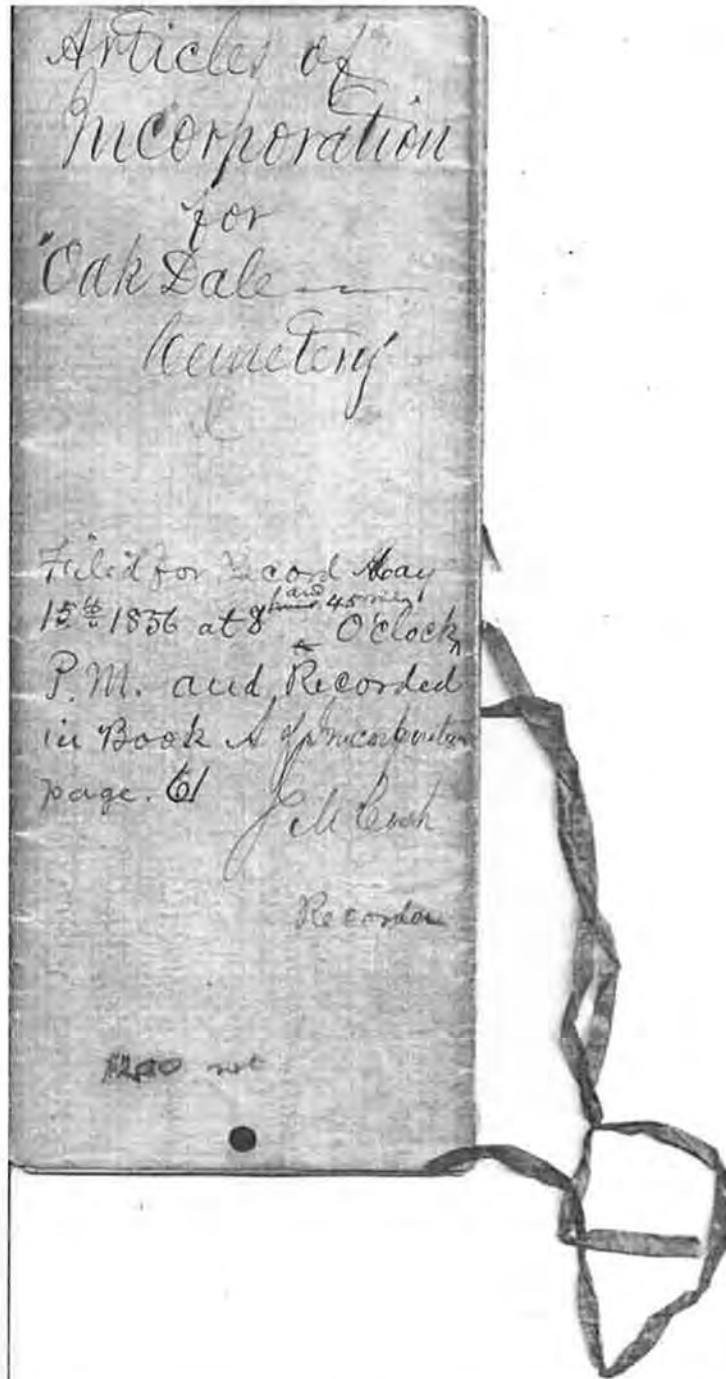 Articles of
Incorporation
for
"Oak Dale —
Cemetery"
Filed for Record May
15th 1856 at 8 and 45 min
O'clock
P.M. and Recorded
in Book A of Incorporation
page. 61
Recorder